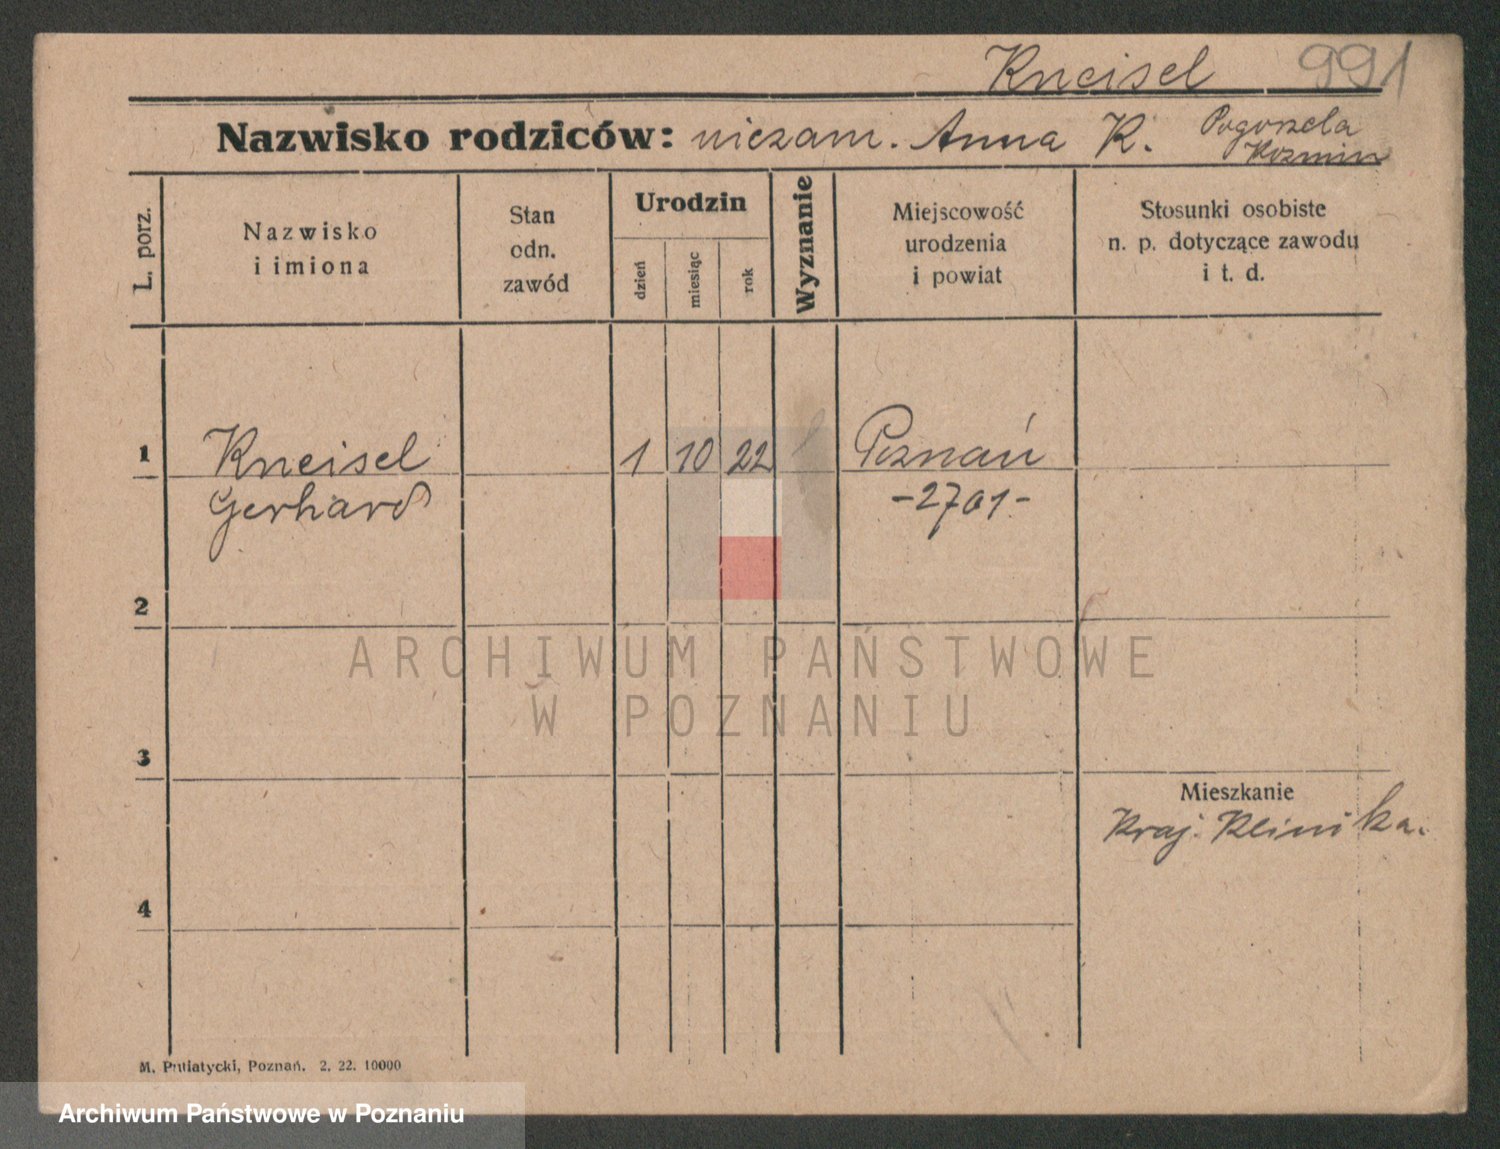 Kneisel 991
Nazwisko rodziców: niezam. Anna K. Pogorzela
Kozmin
L. porz.
Nazwisko
i imiona
Stan
odn.
zawód
Urodzin
dzień
miesiąc
rok
Wyznanie
Miejscowość
urodzenia
i powiat
Stosunki osobiste
n. p. dotyczące zawodu
i t. d.
1 Kneisel 1 10 22 Poznań
Gerhard -2701-
2
ARCHIWUM PAŃSTWOWE
W POZNANIU
3
Mieszkanie
Kraj. Klinika.
4
M. Putiatycki, Poznań. 2. 22. 10000
Archiwum Państwowe w Poznaniu